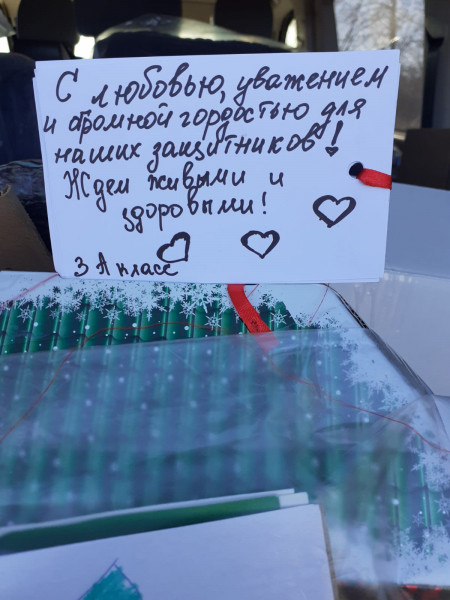 С любовью, уважением
и огромной гордостью для
наших защитников!
Ждем живыми и
здоровыми!
3 А класс